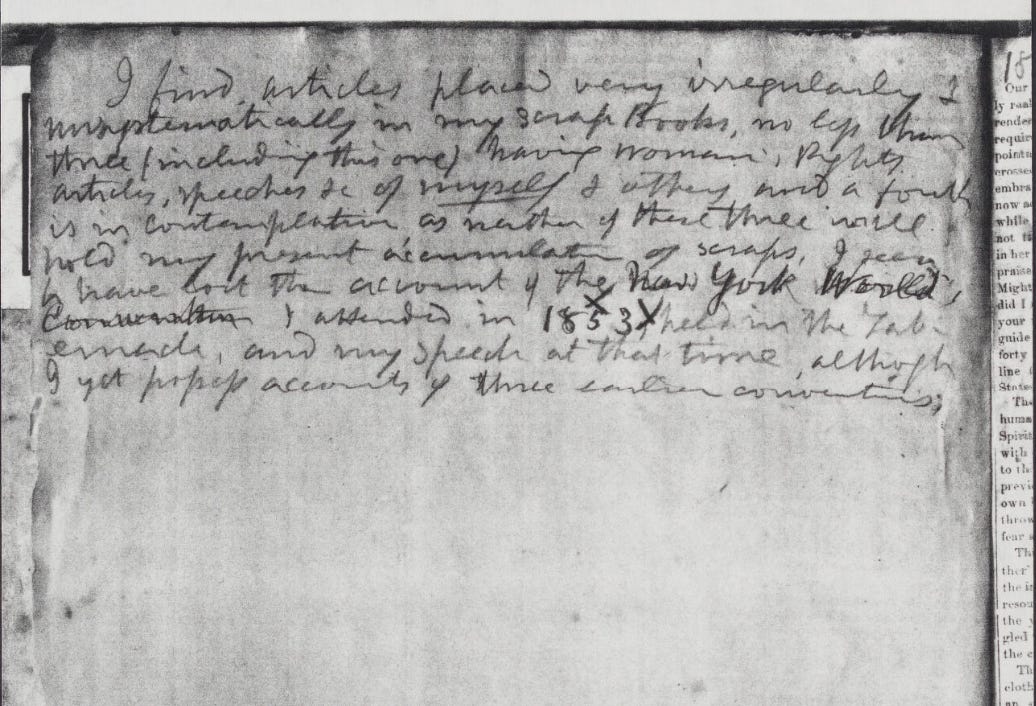 I find articles placed very irregularly &
unsystematically in my scrap Books, no less than
three (including this one) having woman, Rights
articles, speeches &c of myself & others and a fourth
is in contemplation as neither of these three will
hold my present accumulation of scraps, I seem
to have lost the account of the New York World,s
Convention I attended in 1853 X held in the Tab-
ernacle, and my speech at that time, although
I yet possess accounts of three earlier conventions,
18
Our
ly
render
requir
points
crossed
embra
now
while
not
in her
praise
Might
did I
your
guide
forty
line
State
The
huma
Spirit
with
to th
previ
own
throw
fear
Th
ther
the
resou
the
gled
the
Th
cloth
an